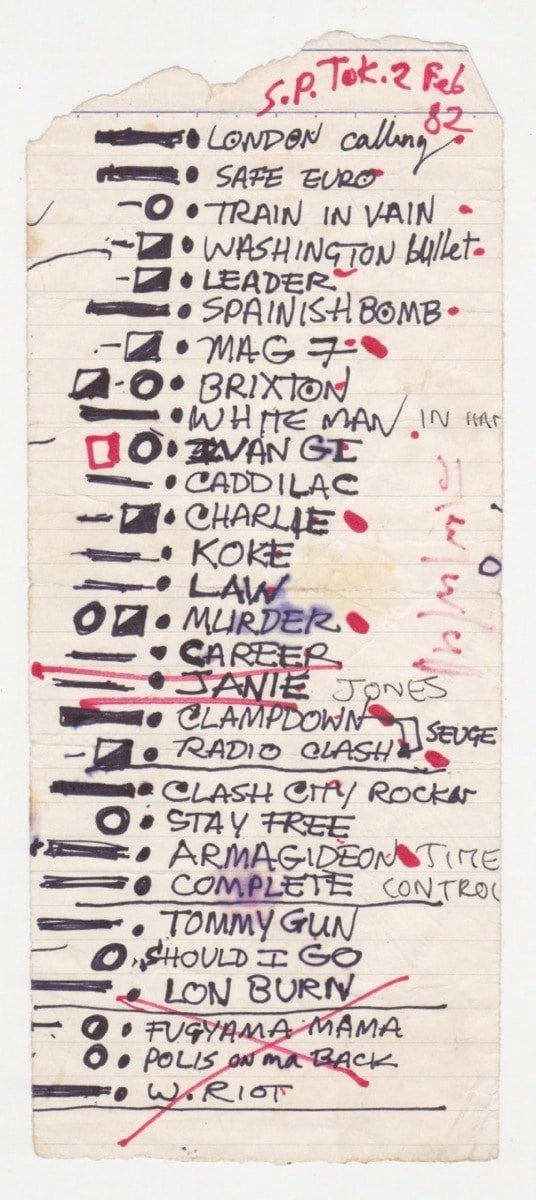 S.P. Tok. 2 Feb
82
LONDON calling
SAFE EURO
TRAIN IN VAIN
WASHINGTON bullet
LEADER
SPAINISH BOMB
MAG 7
BRIXTON
WHITE MAN IN HAM
IVAN GI
CADDILAC
CHARLIE
KOKE
LAW
MURDER
CAREER
JANIE JONES
CLAMPDOWN
SEUGE
RADIO CLASH
CLASH CITY ROCKER
STAY FREE
ARMAGIDEON TIME
COMPLETE CONTROL
TOMMY GUN
SHOULD I GO
LON BURN
FUGYAMA MAMA
POLIS on ma BACK
W. RIOT